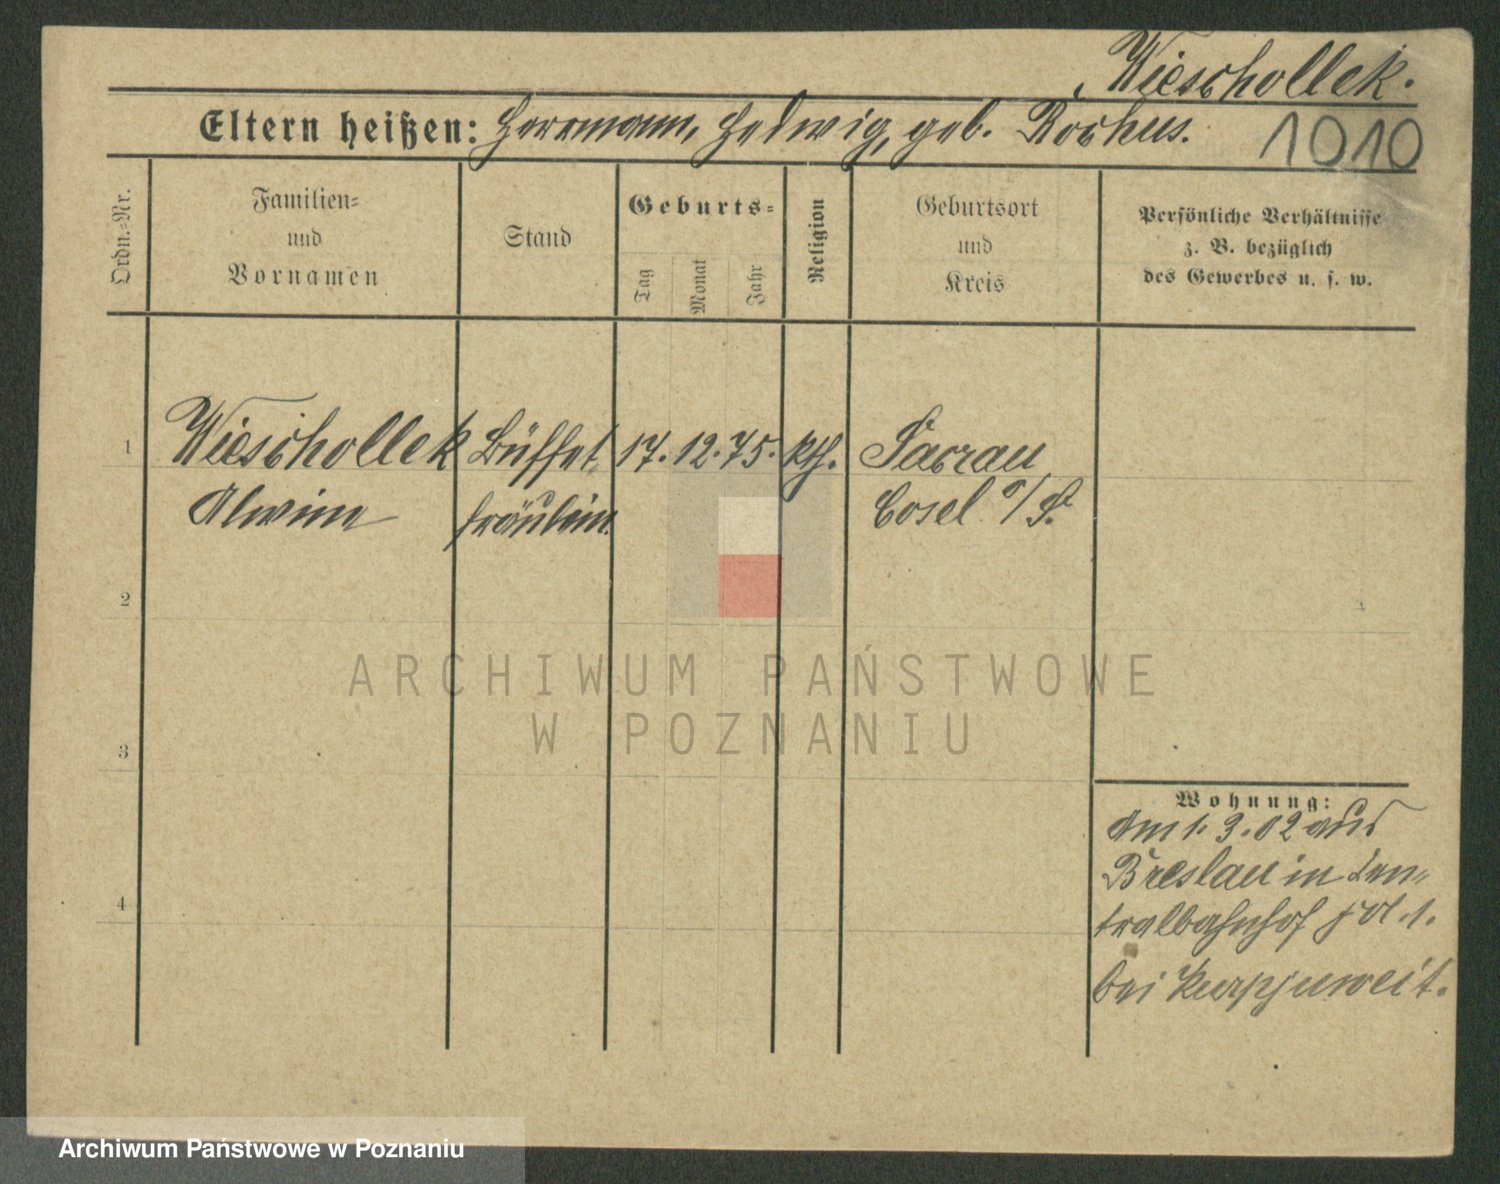 Wieschollek.
Eltern heißen: Herrmann, Hedwig, geb. Rochus.
1010
Ordn.-Nr.
Familien-
und
Vornamen
Stand
Geburts-
Tag
Monat
Jahr
Religion
Geburtsort
und
Kreis
Persönliche Verhältnisse
z. B. bezüglich
des Gewerbes u. s. w.
1 Wieschollek Büffet- 17. 12. 75. kth. Sacrau
Alwine fräulein. Cosel o/S.
2
3
4
Wohnung:
Am 1. 3. 02 aus
Breslau in Cen-
tralbahnhof
bei Kurpjuweit.
ARCHIWUM PAŃSTWOWE
W POZNANIU
Archiwum Państwowe w Poznaniu